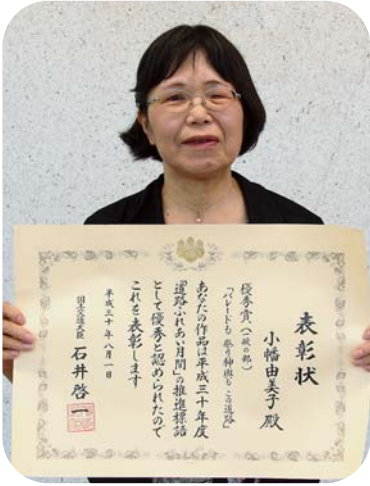 表彰状
小幡由美子殿
優秀賞(一般の部)
「パレードも 祭り神輿も この道路」
あなたの作品は平成三十年度
「道路ふれあい月間」の推進標語
として優秀と認められたので
これを表彰します
平成三十年八月一日
国土交通大臣 石井啓一